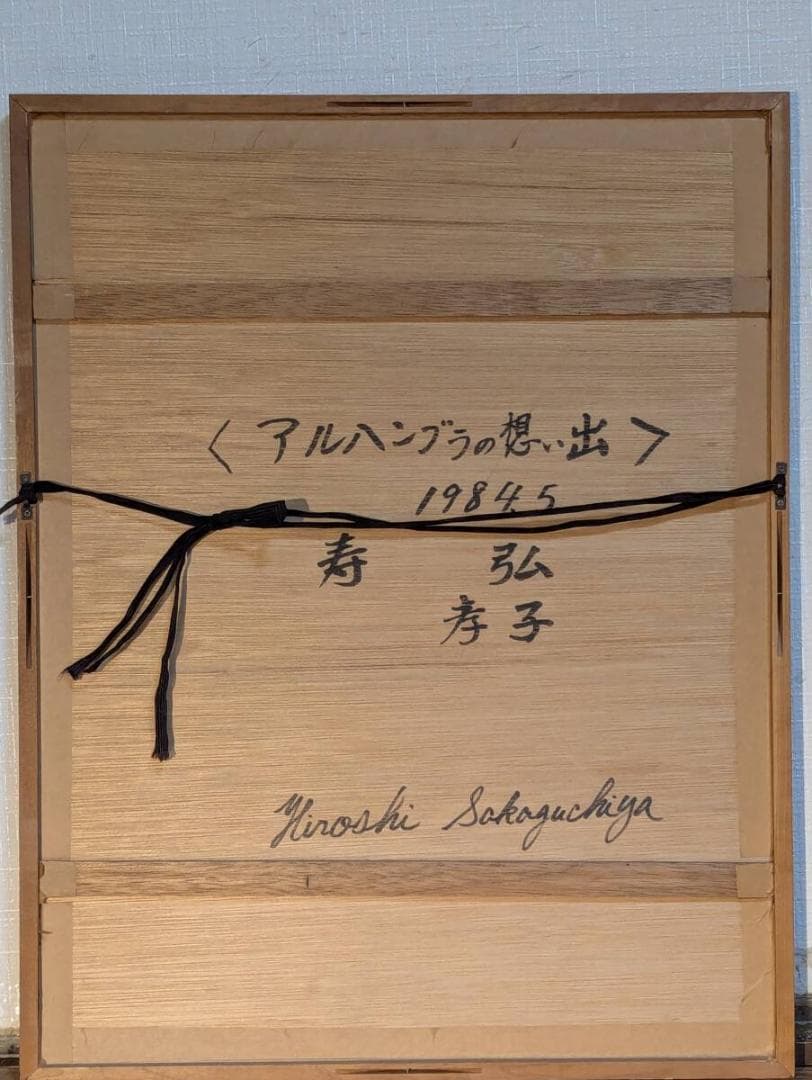 〈アルハンブラの想い出〉
1984.5
寿 弘
孝子
Hiroshi Sakaguchiya